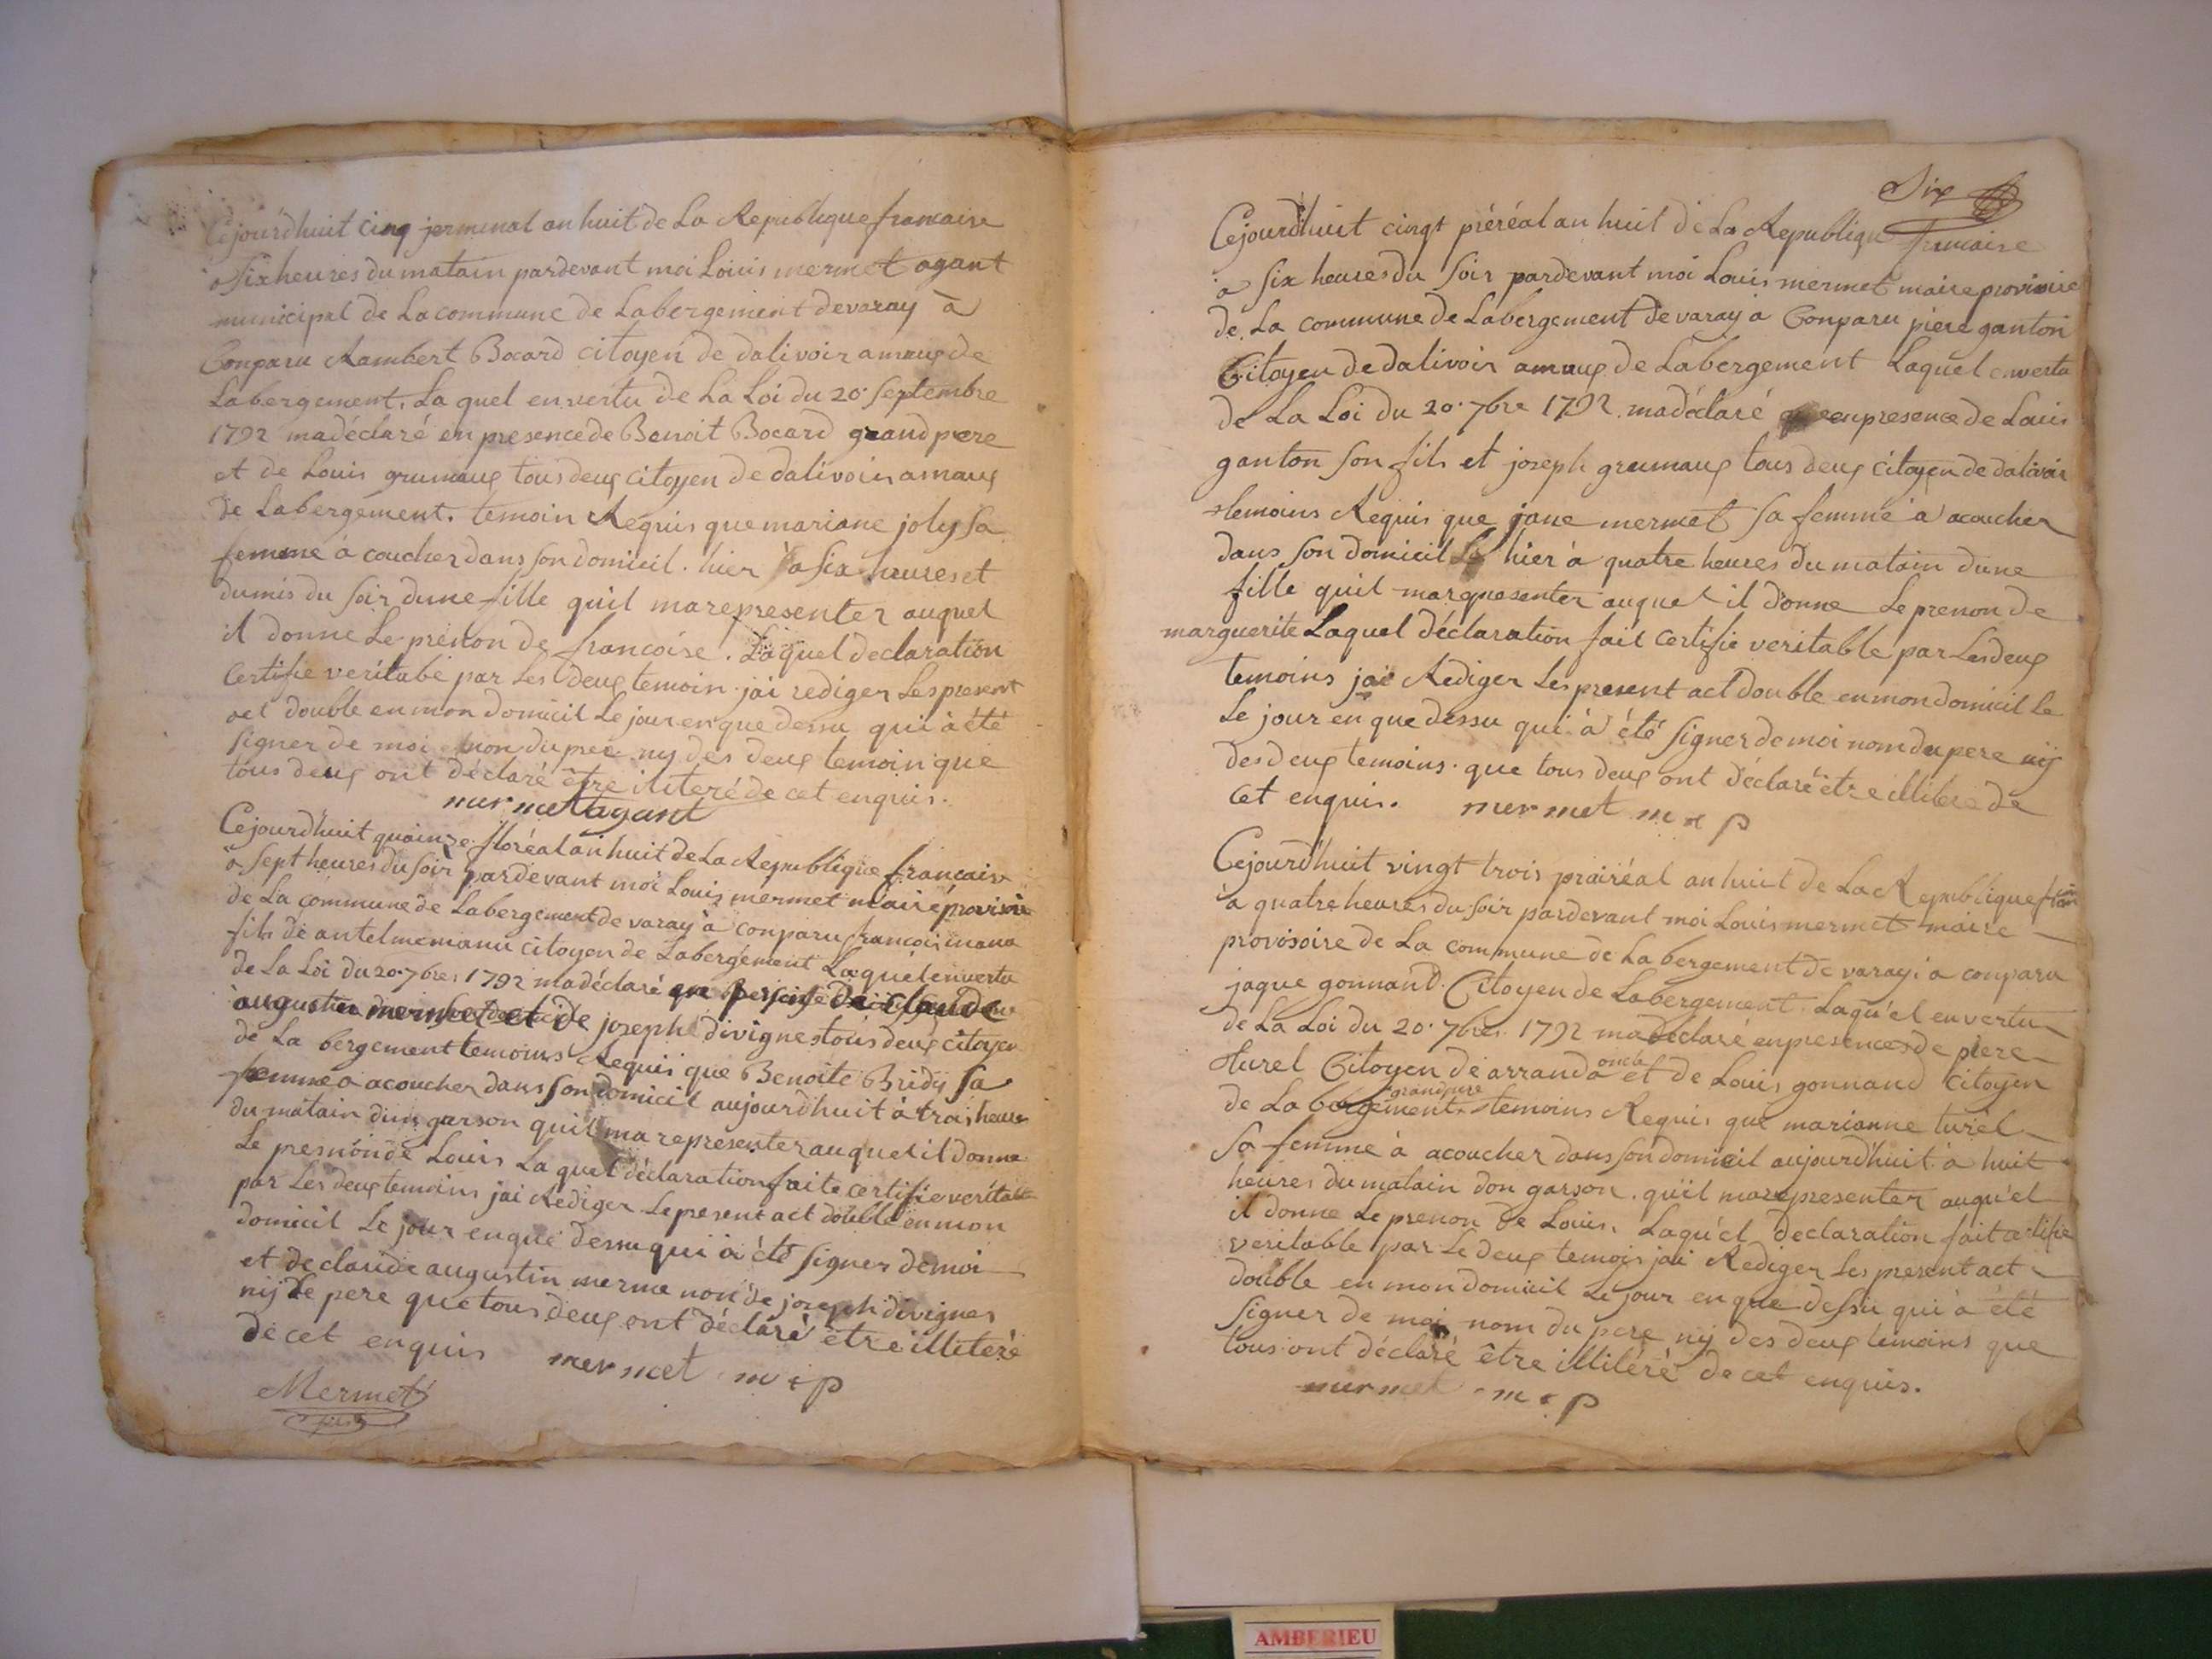 Cejourdhuit cinq jerminal an huit de La Republique francaise
a Six heures du matain pardevant moi Louis mermet agant
municipal de La commune de Labergement devaray à
Conparu Rambert Bocard citoyen de dalivoir amaux de
Labergement. La quel en vertu de La Loi du 20 Septembre
1792 madéclaré en presence de Benoit Bocard grand pere
et de Louis grumaux tous deux citoyen de dalivoir amaux
de Labergement. temoin Requis que mariane joly sa
femme à coucher dans son domicil. hier à six heures et
dumis du soir dune fille quil marepresenter auquel
il donne Le prénon de francoise. Laquel declaration
Certifie veritabe par Les deux temoin jai rediger Lespresent
act double en mon domicil Le jour en que dessu qui à été
signer de moi non du pere ny des deux temoin que
tous deux ont déclaré être iliteré de cet enquis.
mermet agant
Cejourdhuit quainze floréal an huit de La Republique francaise
a Sept heures du Soir pardevant moi Louis mermet maire provisoire
de La commune de Labergement de varay à conparu francois manu
fils de antelme manu citoyen de Labergement Laquél en vertu
de La Loi du 20. 7bres 1792 madéclaré en presence de claude
augustin mermet et de joseph divignes tous deux citoyen
de La bergement temoins Requis que Benoite Bridy sa
femme a acoucher dans son domicil aujourdhuit à trois heures
du matain dun garson quil ma representer auquel il donne
Le presnon de Louis Laquel déclaration faite certifie veritable
par Les deux temoins jai Rediger Le present act double en mon
domicil Le jour en que dessu qui à été signer de moi
et de claude augustin merme non de joseph divignes
nij de pere que tous deux ont déclaré être illiteré
de cet enquis mermet m + p
Mermet
fils
Six
Cejourdhuit cingt préréal an huit de La Republique francaise
a Six heures du Soir pardevant moi Louis mermet maire provisoire
de La commune de Labergement de varay à Conparu piere ganton
Citoyen de dalivoir amaux de Labergement Laquel en vertu
de La Loi du 20. 7bre 1792 madéclaré en presence de Louis
ganton son fils et joseph grumaux tous deux citoyen de dalivoir
temoins Requis que jane mermet sa femme à acoucher
dans son domicil hier à quatre heures du matain dune
fille quil marepresenter auquel il donne Le prenon de
marguerite Laquel déclaration fait certifie veritable par Les deux
temoins jai Rediger Les present act double en mon domicil Le
Le jour en que dessu qui à été signer de moi nom du pere nij
des deux temoins. que tous deux ont déclaré être illiteré de
cet enquis. mermet m + p
Cejourdhuit vingt trois prairéal an huit de La Republique fran
à quatre heures du soir pardevant moi Louis mermet maire
provisoire de La commune de La bergement de varay à conparu
jaque gonnand. Citoyen de Labergement Laquél en vertu
de La Loi du 20. 7bre 1792 madéclaré en presences de piere
turel Citoyen de arranda oncle et de Louis gonnand citoyen
de La bergement grandpere temoins Requis que marianne turél
Sa femme à acoucher dans son domicil aujourdhuit à huit
heures du matain don garson. quil marepresenter auquél
il donne Le prenon de Louis. Laquél declaration fait certifie
veritable par Le deux temois jai Rediger Les present act
double en mon domicil Le jour en que dessu qui à été
signer de moi nom du pere nij des deux temoins que
tous ont déclaré être illiteré de cet enquis.
mermet m + p
AMBERIEU